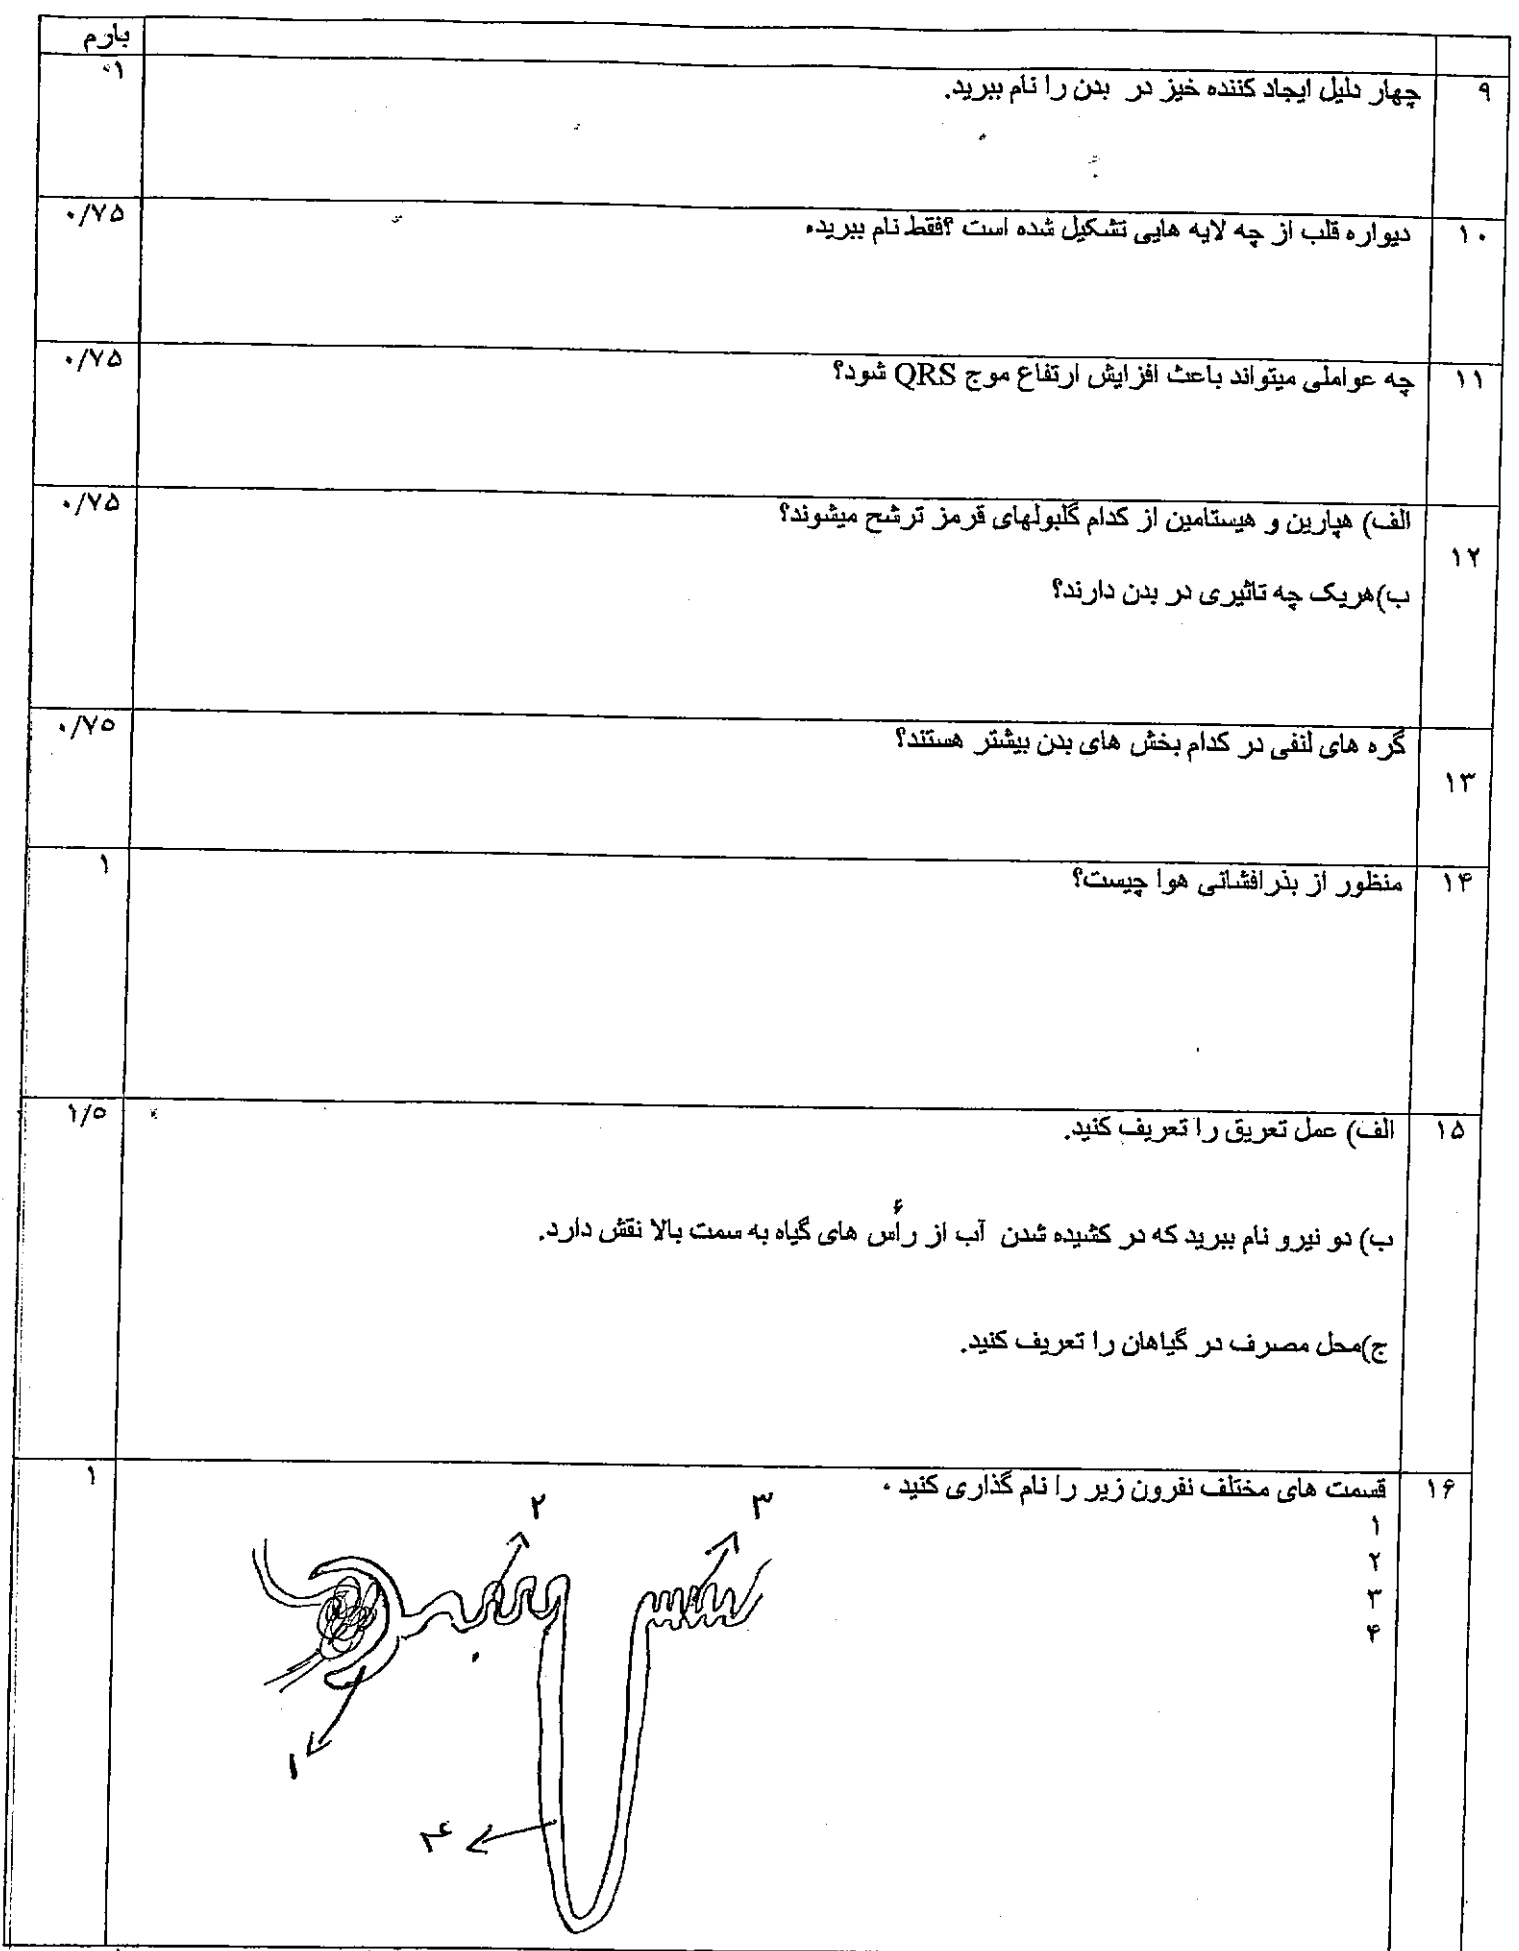 بارم
۹ چهار دلیل ایجاد کننده خیز در بدن را نام ببرید. ۱
۱۰ دیواره قلب از چه لایه هایی تشکیل شده است ؟فقط نام ببرید. ۰/۷۵
۱۱ چه عواملی میتواند باعث افزایش ارتفاع موج QRS شود؟ ۰/۷۵
۱۲ الف) هپارین و هیستامین از کدام گلبولهای قرمز ترشح میشوند؟ ۰/۷۵
ب)هریک چه تاثیری در بدن دارند؟
۱۳ گره های لنفی در کدام بخش های بدن بیشتر هستند؟ ۰/۷۵
۱۴ منظور از بذرافشانی هوا چیست؟ ۱
۱۵ الف) عمل تعریق را تعریف کنید. ۱/۵
ب) دو نیرو نام ببرید که در کشیده شدن آب از رأس های گیاه به سمت بالا نقش دارد.
ج)محل مصرف در گیاهان را تعریف کنید.
۱۶ قسمت های مختلف نفرون زیر را نام گذاری کنید . ۱
۱
۲
۳
۴
۲ ۳
۱
۴